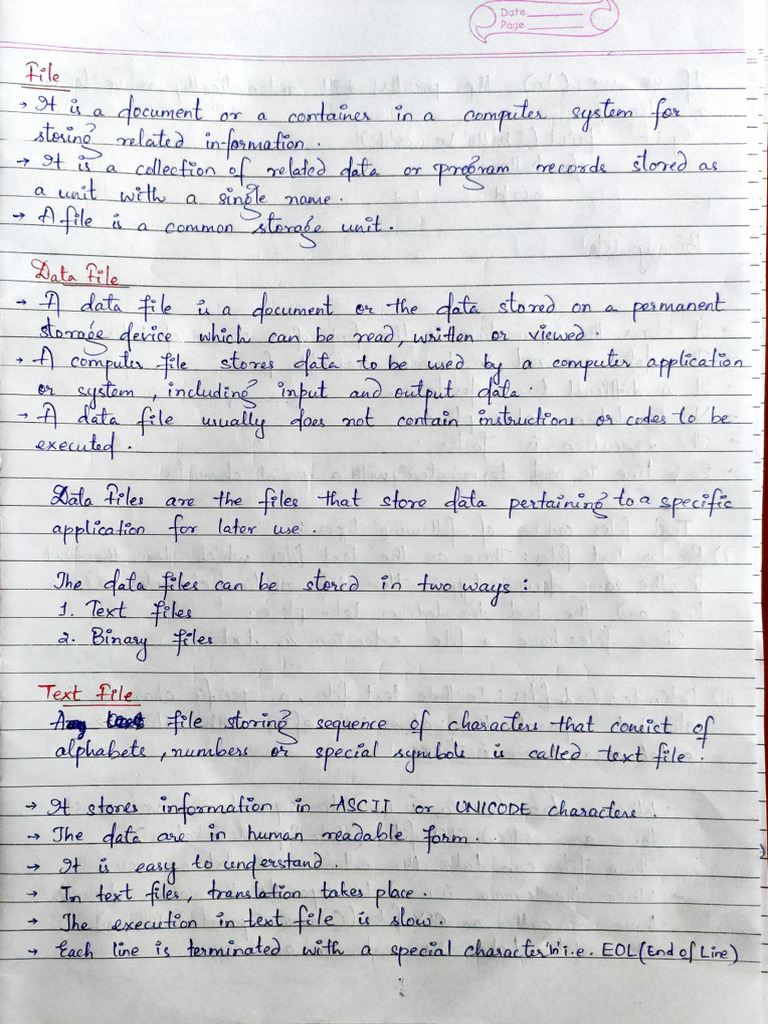 Date
Page
File
→ It is a document or a container in a computer system for
storing related information.
→ It is a collection of related data or program records stored as
a unit with a single name.
→ A file is a common storage unit.
Data File
→ A data file is a document or the data stored on a permanent
storage device which can be read, written or viewed.
→ A computer file stores data to be used by a computer application
or system, including input and output data.
→ A data file usually does not contain instructions or codes to be
executed.
Data Files are the files that store data pertaining to a specific
application for later use.
The data files can be stored in two ways:
1. Text files
2. Binary files
Text File
A file storing sequence of characters that consist of
alphabets, numbers or special symbols is called text file.
→ It stores information in ASCII or UNICODE characters.
→ The data are in human readable form.
→ It is easy to understand.
→ In text files, translation takes place.
→ The execution in text file is slow.
→ Each line is terminated with a special character '\n' i.e. EOL (End of Line)